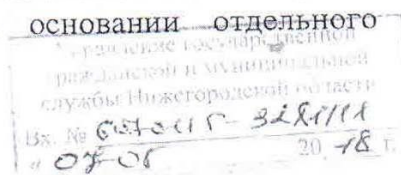 основании отдельного
Управление государственной
гражданской и муниципальной
службы Нижегородской области
Вх. №
" 07-05 20 18 г.